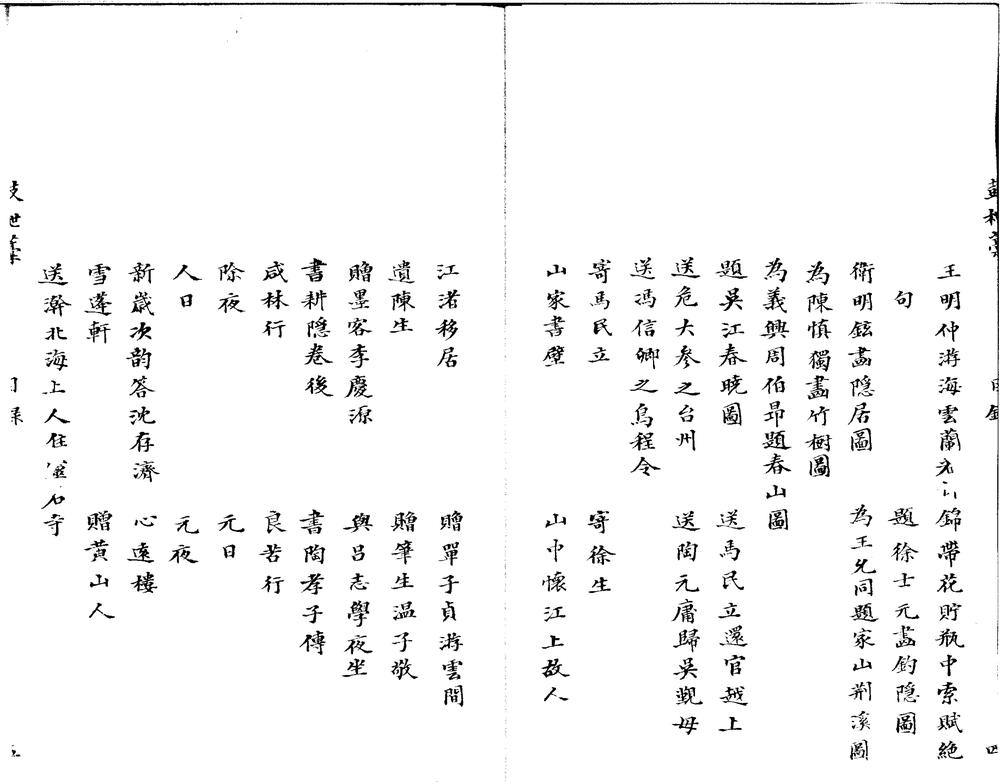 王明仲游海雲蘭 錦帶花貯瓶中索賦絶
句 題徐士元畫釣隠圖
衛明鉉畫隠居圖 為王允同題家山荆溪圖
為陳慎獨畫竹樹圖
為義興周伯昻題春山圖
題吳江春曉圖 送馬民立還官越上
送危大參之台州 送陶元庸歸吳覲母
送馮信卿之烏程令
寄馬民立 寄徐生
山家書壁 山中懷江上故人
江渚移居 贈單子貞游雲間
遺陳生 贈筆生温子敬
贈墨客李慶源 與吕志學夜坐
書耕隠卷後 書陶孝子傳
咸林行 良苦行
除夜 元日
人日 元夜
新歲次韵答沈存濟 心遠樓
雪蓬軒 贈黄山人
送澣北海上人住 石寺